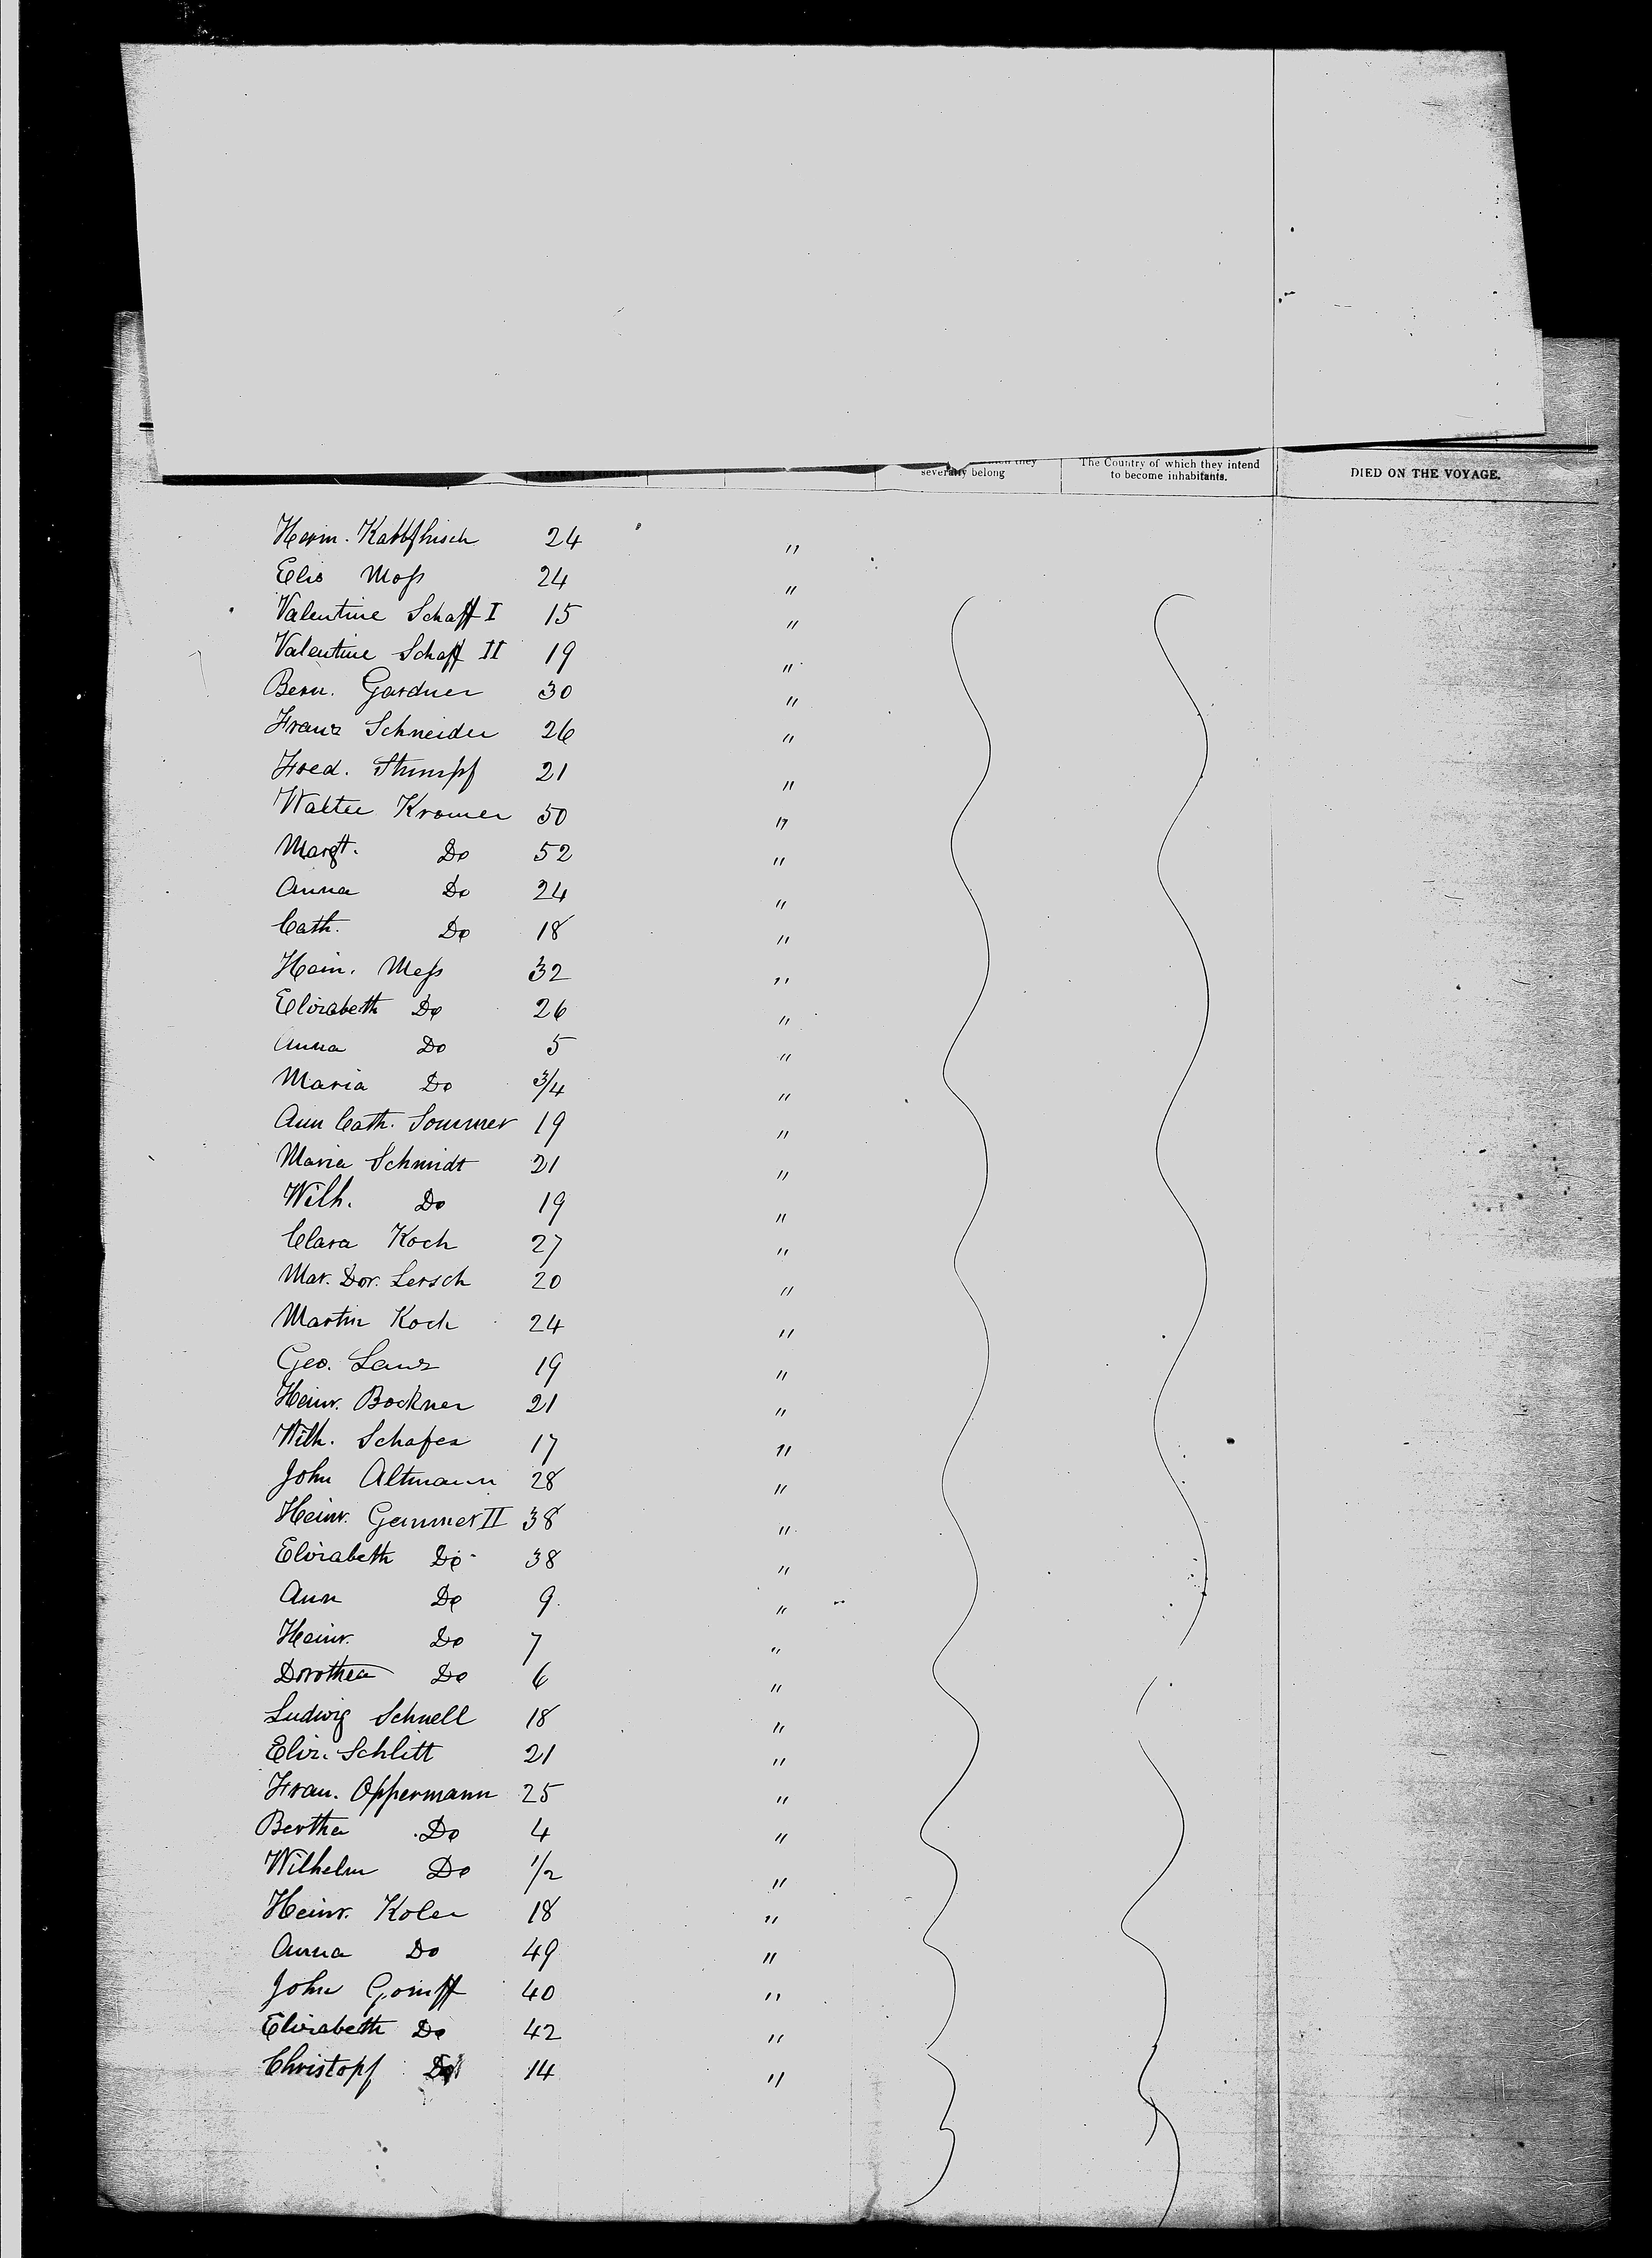 severally belong
The Country of which they intend
to become inhabitants.
DIED ON THE VOYAGE.
Herm. 24 "
Elis Moſs 24 "
Valentine Schaff I 15 "
Valentine Schaff II 19 "
Bern. Gardner 30 "
Franz Schneider 26 "
Fred. Stumpf 21 "
Walter Kromer 50 "
Margt. Do 52 "
Anna Do 24 "
Cath. Do 18 "
Hein. Meſs 32 "
Elizabeth Do 26 "
Anna Do 5 "
Maria Do 3/4 "
Ann Cath. Sommer 19 "
Maria Schmidt 21 "
Wilh. Do 19 "
Clara Koch 27 "
Mar. Dor. Lersch 20 "
Martin Koch 24 "
Geo. Lanz 19 "
Heinr. Bockner 21 "
Wilh. Schafer 17 "
John Altmann 28 "
Heinr. Gemmer II 38 "
Elizabeth Do 38 "
Ann Do 9 "
Heinr. Do 7 "
Dorothea Do 6 "
Ludwig Schnell 18 "
Eliz. Schlitt 21 "
Fran. Oppermann 25 "
Bertha Do 4 "
Wilhelm Do 1/2 "
Heinr. Koler 18 "
Anna Do 49 "
John 40 "
Elizabeth Do 42 "
Christopf Do 14 "